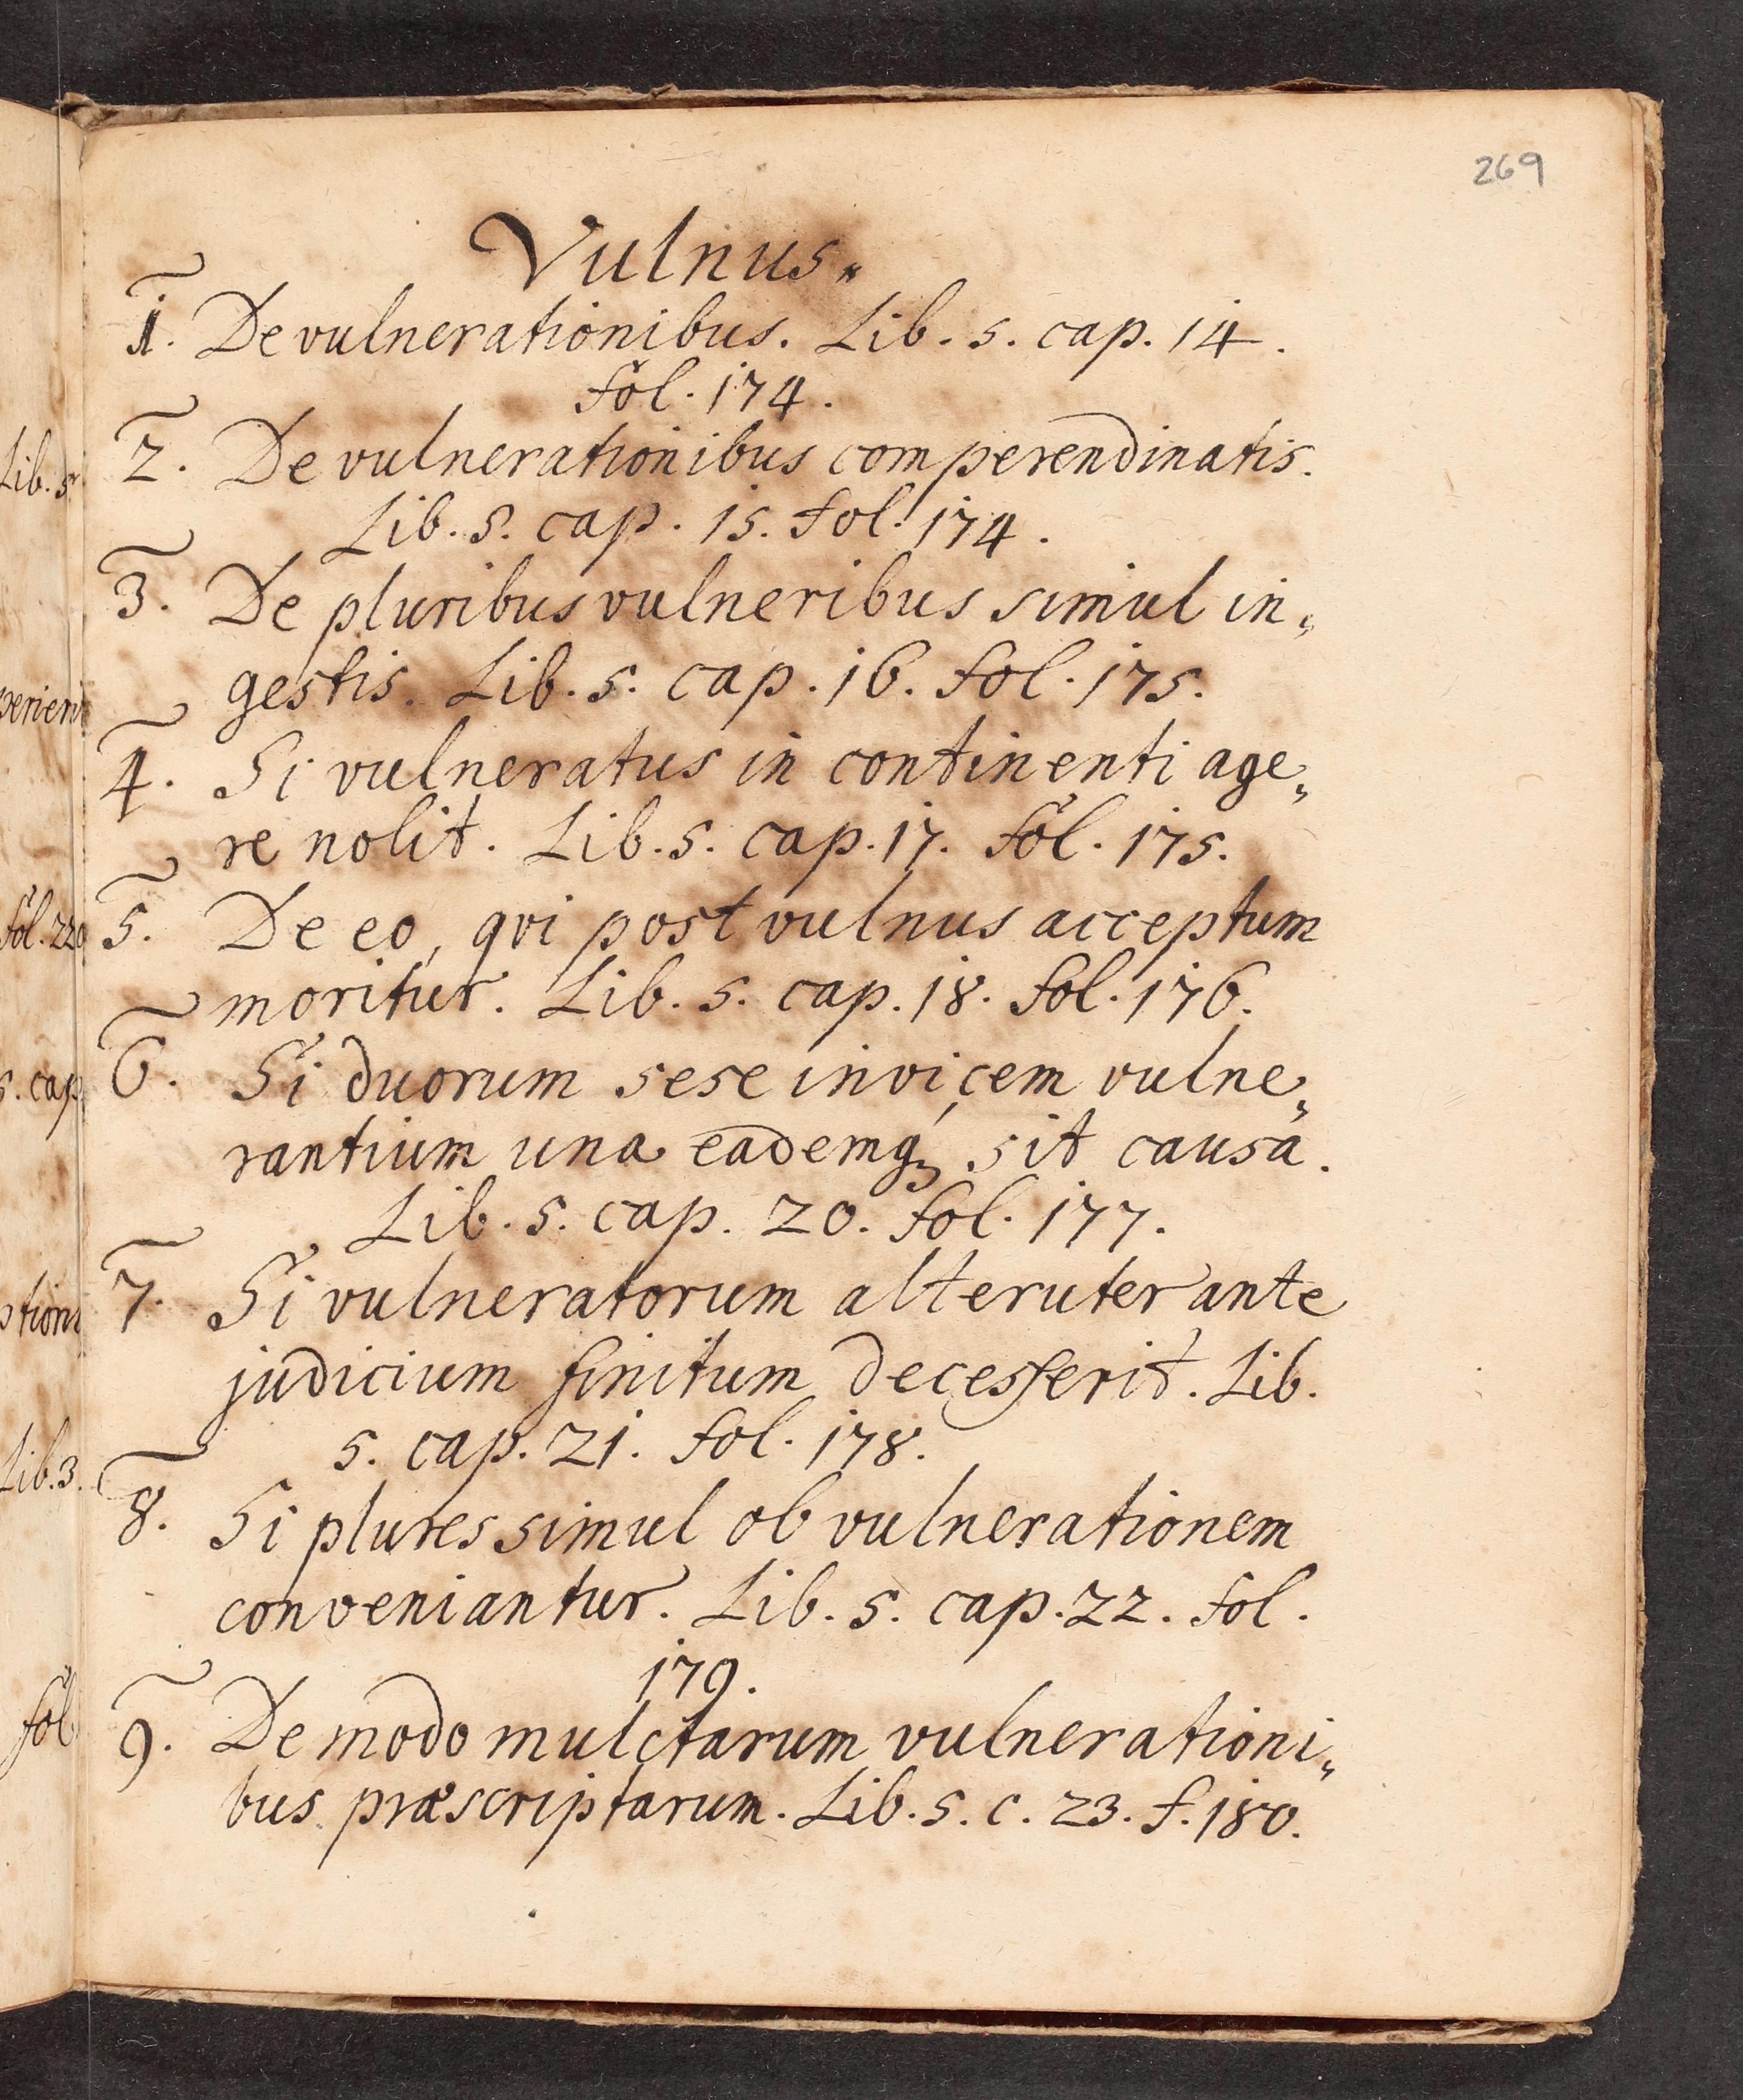 269
Vulnus.
1. De vulnerationibus. Lib. 5. cap. 14.
fol. 174.
2. De vulnerationibus comperendinatis.
Lib. 5. cap. 15. fol. 174.
3. De pluribus vulneribus simul in„
gestis. Lib. 5. cap. 16. fol. 175.
4. Si vulneratus in continenti age„
re nolit. Lib. 5. cap. 17. fol. 175.
5. De eo, qvi post vulnus acceptum
moritur. Lib. 5. cap. 18. fol. 176.
6. Si duorum sese invicem vulne„
rantium una eademq́ꝫ sit causa.
Lib. 5. cap. 20. fol. 177.
7. Si vulneratorum alteruter ante
judicium finitum decesserit. Lib.
5. cap. 21. fol. 178.
8. Si plures simul ob vulnerationem
conveniantur. Lib. 5. cap. 22. fol.
179.
9. De modo mulctarum vulnerationi„
bus præscriptarum. Lib. 5. c. 23. f. 180.
Lib. 5.
fol. 220
5. cap.
Lib. 3.
fol